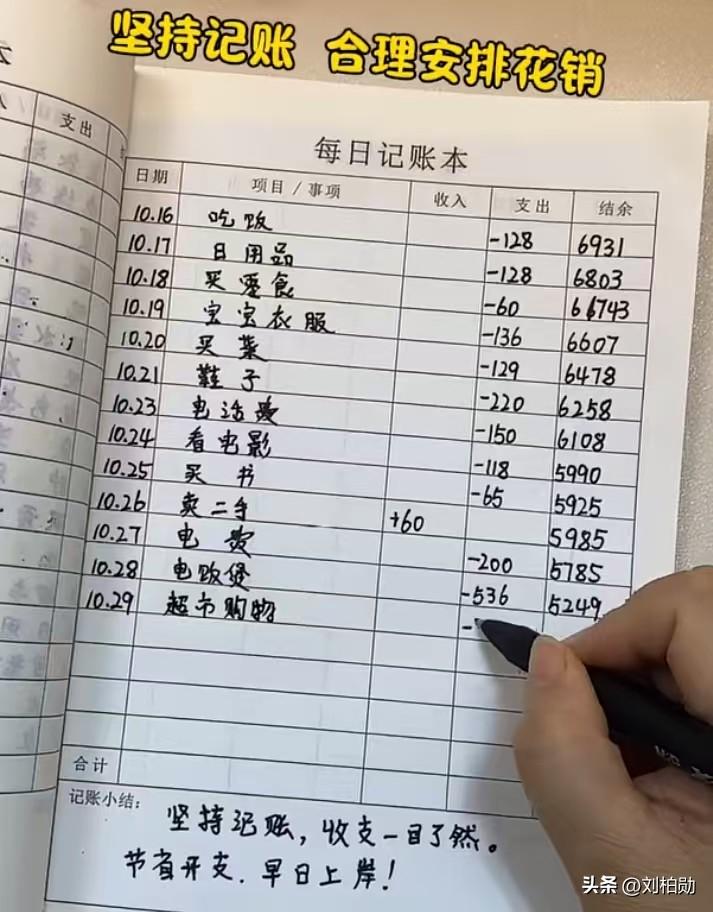 坚持记账 合理安排花销
支出
每日记账本
日期 项目/事项 收入 支出 结余
10.16 吃饭 -128 6931
10.17 日用品 -128 6803
10.18 买零食 -60 66743
10.19 宝宝衣服 -136 6607
10.20 买菜 -129 6478
10.21 鞋子 -220 6258
10.23 电话费 -150 6108
10.24 看电影 -118 5990
10.25 买书 -65 5925
10.26 卖二手 +60 5985
10.27 电费 -200 5785
10.28 电饭煲 -536 5249
10.29 超市购物 -
合计
记账小结:
坚持记账，收支一目了然。
节省开支.早日上岸！
头条 @刘柏勋